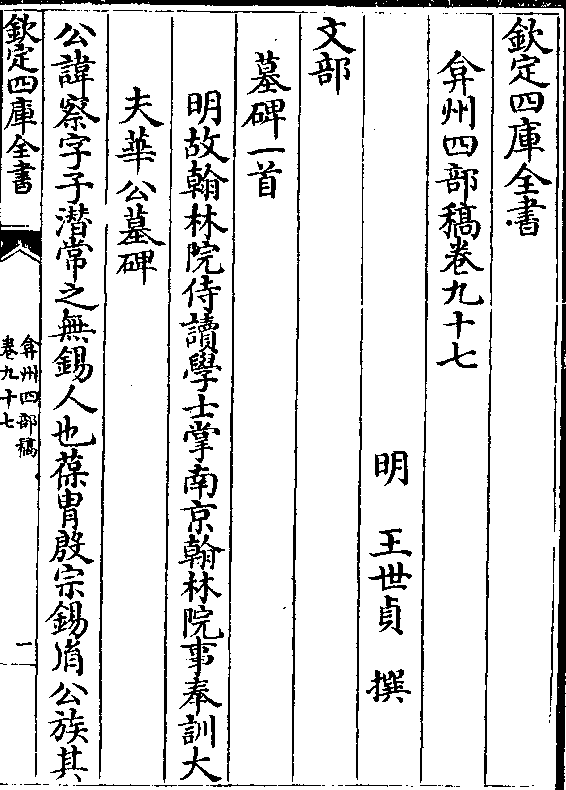 欽定四庫全書
弇州四部稿卷九十七
明 王世貞 撰
文部
墓碑一首
明故翰林院侍讀學士掌南京翰林院事奉訓大
夫華公墓碑
公諱察字子潛常之無錫人也葆胄啟宗錫㣧公族其
欽定四庫全書
弇州四部稿
卷九十七
一